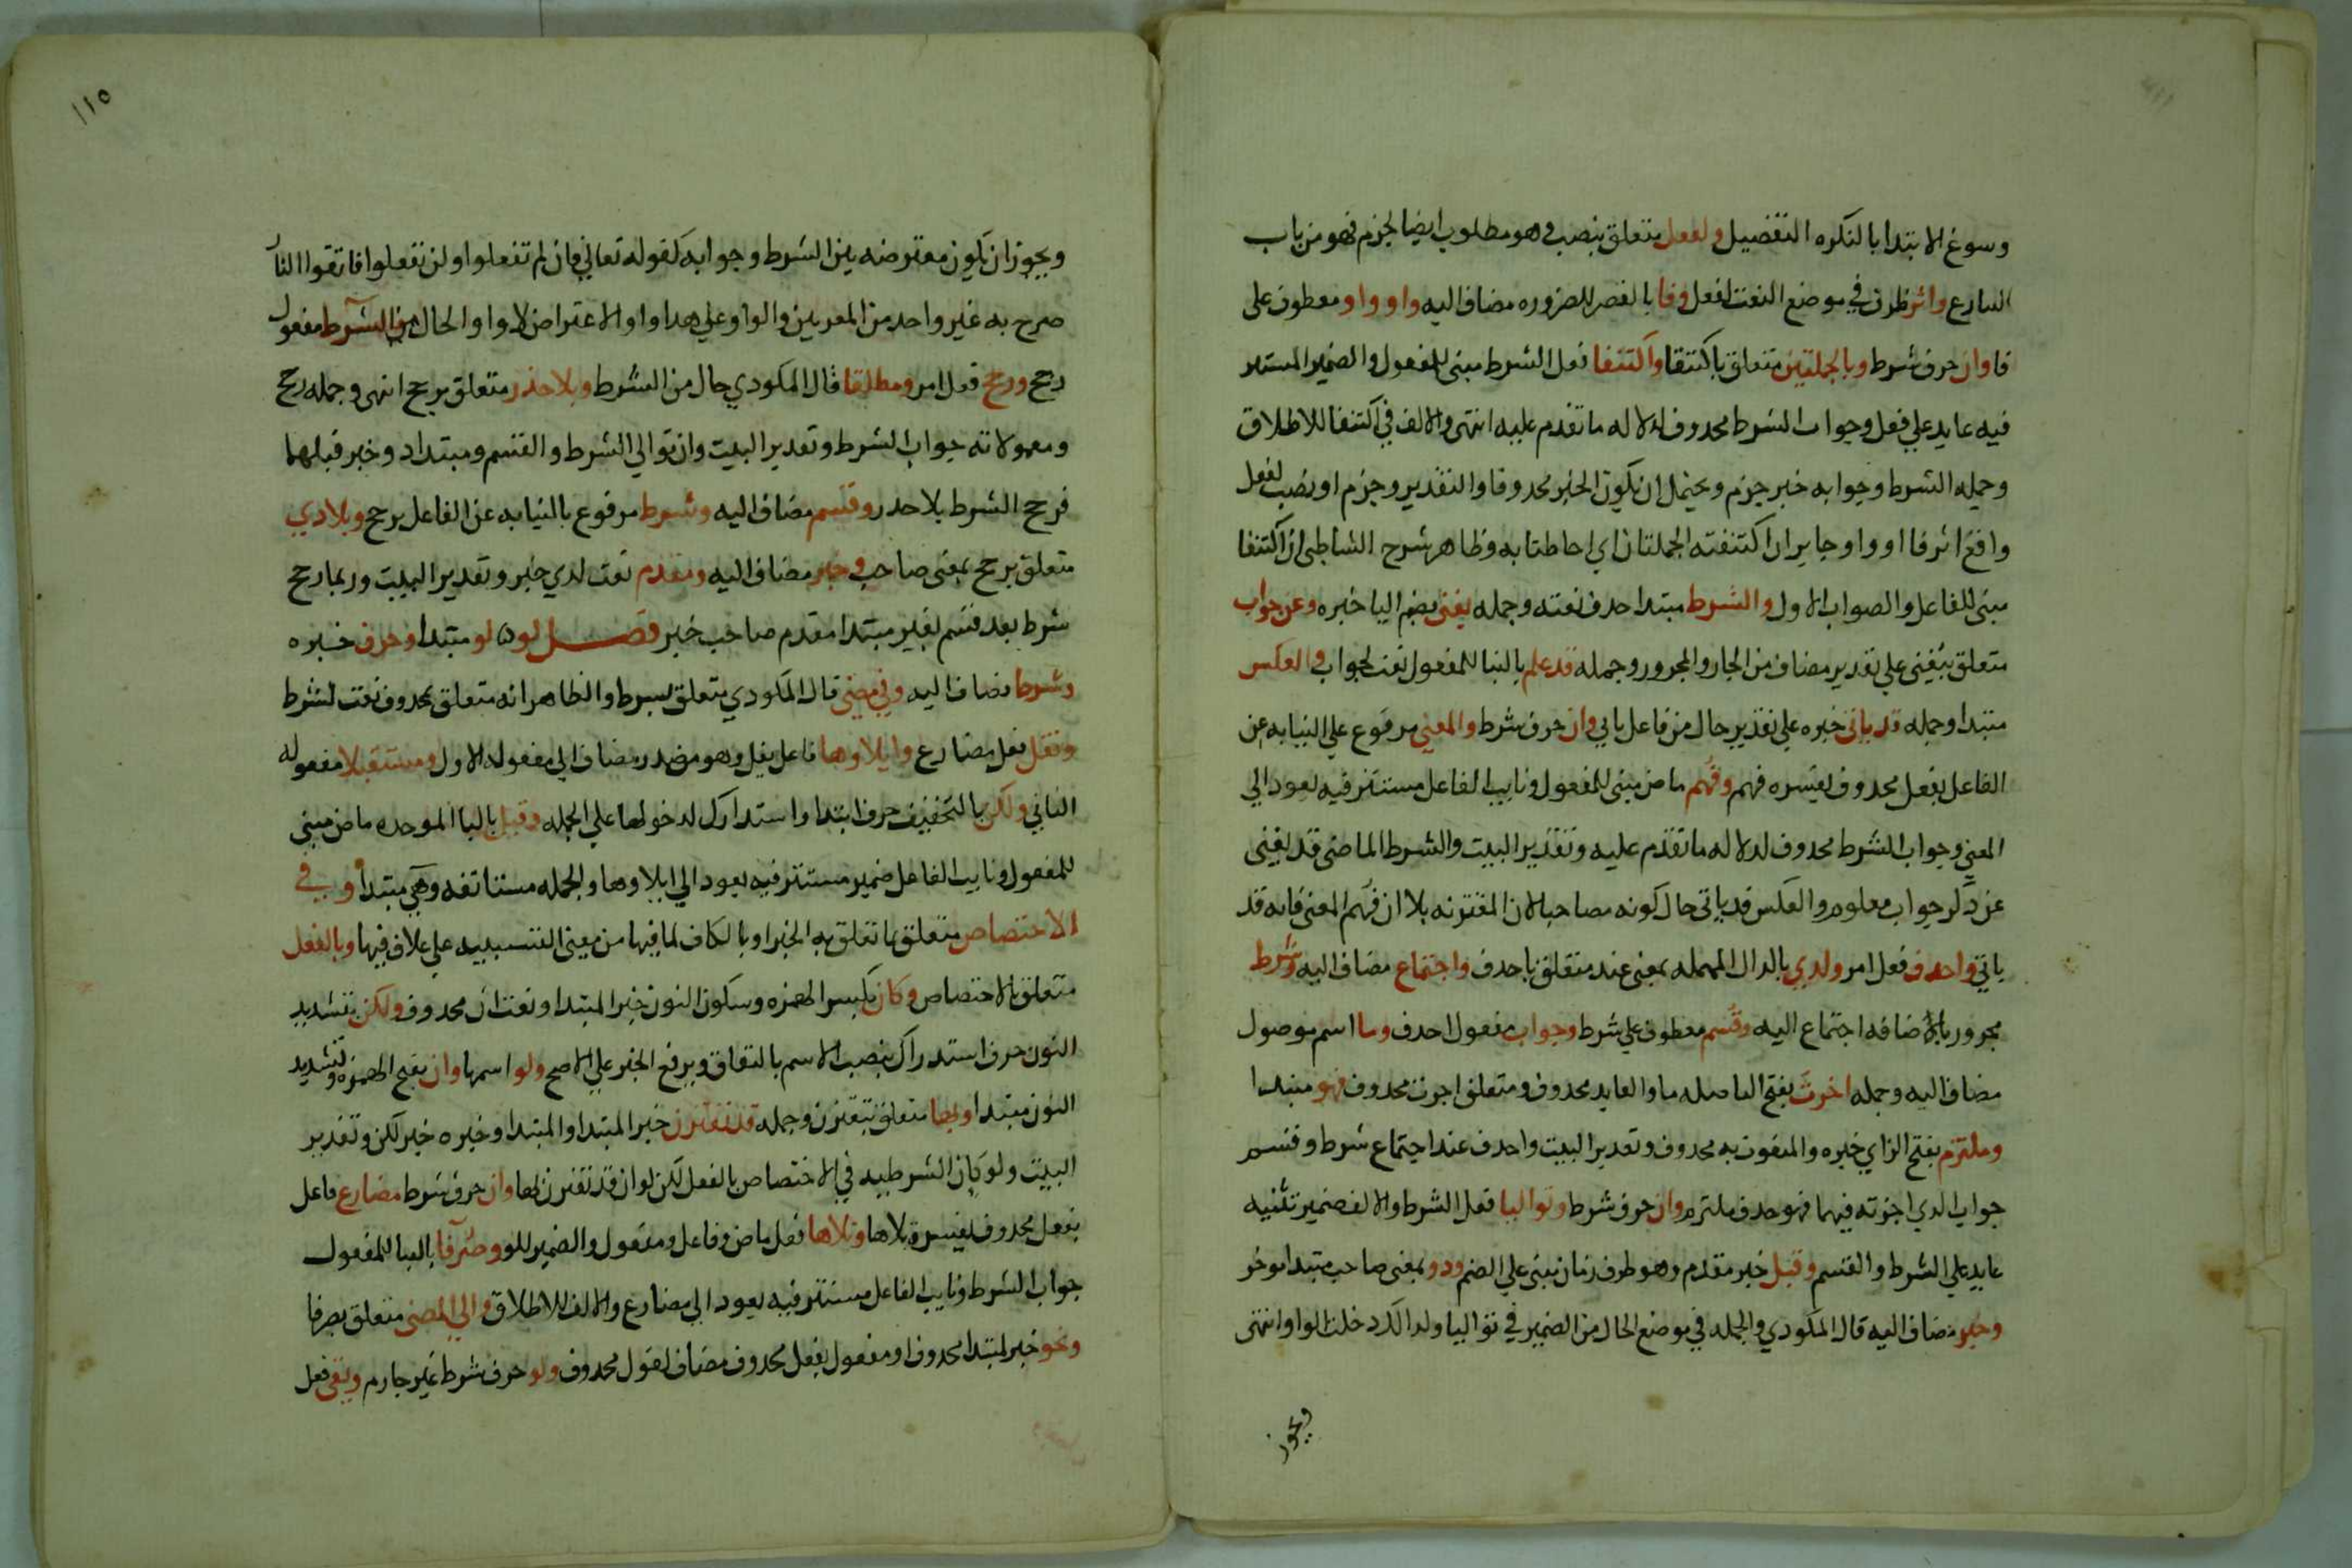 وسوغ الابتدا بالنكره التفضيل ولفعل يتعلق بنصب وهو مطلوب ايضا لجزم فهو من باب
التنازع واثر ظرف في موضع النعت لفعل وفا بالقصر للضروره مضاف اليه واو واو معطوف على
فا وان حرف شرط وبالجملتين متعلق باكتنفا واكتنفا فعل الشرط مبنى للمفعول والضمير المستتر
فيه عايد علي فعل وجواب الشرط محذوف لدلاله ما تقدم عليه انتهى والالف في اكتنفا للاطلاق
وجمله الشرط وجوابه خبر جزم ويحتمل ان يكون الخبر محذوفا والتقدير وجزم او نصب لفعل
واقع اثر فا او واو جايز ان اكتنفته الجملتان اي احاطتا به وظاهر شرح الشاطبي ان اكتنفا
مبنى للفاعل والصواب الاول والشرط مبتدا حذف نعته وجمله يغنى بضم اليا خبره وعن جواب
متعلق بيغنى علي تقدير مضاف من الجار والمجرور وجمله قد علم بالبنا للمفعول نعت لجواب والعكس
مبتدا وجمله قد ياتى خبره علي تقدير حال من فاعل ياتي وان حرف شرط والمعني مرفوع علي النيابه عن
الفاعل بفعل محذوف يفسره فهم وفهم ماض مبنى للمفعول ونايب الفاعل مستتر فيه يعود الي
المعني وجواب الشرط محذوف لدلاله ما تقدم عليه وتقدير البيت والشرط الماضى قد يغنى
عن ذكر جواب معلوم والعكس قد ياتى حال كونه مصاحبا لان المقترنه بلا ان فهم المعنى فانه قد
ياتي واحذف فعل امر ولدي بالدال المهمله بمعنى عند متعلق باحذف واجتماع مضاف اليه وشرط
مجرور باضافه اجتماع اليه وقسم معطوف علي شرط وجواب مفعول احذف وما اسم موصول
مضاف اليه وجمله اخرت بفتح التا صله ما والعايد محذوف ومتعلق اخرت محذوف فهو مبتدا
وملتزم بفتح الزاي خبره والمنعوت به محذوف وتقدير البيت واحذف عند اجتماع شرط وقسم
جواب الذي اخرته فيهما فهو حذف ملتزم وان حرف شرط وتواليا فعل الشرط والالف ضمير تثنيه
عايد علي الشرط والقسم وقبل خبر مقدم وهو ظرف زمان مبنى علي الضم وذو بمعنى صاحب مبتدا موخر
وخبر مضاف اليه قال المكودي والجمله في موضع الحال من الضمير في تواليا ولذلك دخلت الواو انتهى
ويجوز
١١٥
ويجوز ان يكون معترضه بين الشرط وجوابه كقوله تعالي فان لم تفعلوا ولن تفعلوا فاتقوا النار
صرح به غير واحد من المعربين والواو علي هذا واو الاعتراض لا واو الحال فالشرط مفعول
رجح ورجح فعل امر ومطلقا قال المكودي حال من الشرط وبلا حذر متعلق برجح انتهى وجمله رجح
ومعمولاته جواب الشرط وتقدير البيت وان توالي الشرط والقسم ومبتدا ذو خبر قبلهما
فرجح الشرط بلا حذر وقسم مضاف اليه وشرط مرفوع بالنيابه عن الفاعل برجح وبلا ذي
متعلق برجح بمعنى صاحب وخبر مضاف اليه ومقدم نعت لذي خبر وتقدير البيت وربما رجح
شرط بعد قسم بغير مبتدا مقدم صاحب خبر فصل لو لو مبتدا وحرف خبره
وشرط مضاف اليه وفي مضي قال المكودي متعلق بشرط والظاهر انه متعلق بمحذوف نعت لشرط
ويقل فعل مضارع وايلاوها فاعل يقل وهو مصدر مضاف الي مفعوله الاول ومستقبلا مفعوله
الثاني ولكن بالتخفيف حرف ابتدا واستدراك لدخولها علي الجمله وقبل بالبا الموحده ماض مبنى
للمفعول ونايب الفاعل ضمير مستتر فيه يعود الي ايلاوها والجمله مستانفه وهي مبتدا وفي
الاختصاص متعلق بما تعلق به الخبر او بالكاف لما فيها من معنى التشبيه علي خلاف فيها وبالفعل
متعلق بالاختصاص وكان بكسر الهمزه وسكون النون خبر المبتدا ونعت ان محذوف ولكن بتشديد
النون حرف استدراك ينصب الاسم بالتفاق ويرفع الخبر علي الاصح ولو اسمها وان بفتح الهمزه وتشديد
النون مبتدا وبها متعلق بتقترن وجمله قد تقترن خبر المبتدا والمبتدا وخبره خبر لكن وتقدير
البيت ولو كان الشرطيه في الاختصاص بالفعل لكن لو ان قد تقترن بها وان حرف شرط مضارع فاعل
بفعل محذوف يفسره تلاها وتلاها فعل ماض وفاعل ومفعول والضمير للو وصرفا بالبنا للمفعول
جواب الشرط ونايب الفاعل مستتر فيه يعود الي مضارع والالف للاطلاق والي المضي متعلق بصرفا
ونحو خبر لمبتدا محذوف او مفعول بفعل محذوف مضاف لقول محذوف ولو حرف شرط غير جازم ويفي فعل